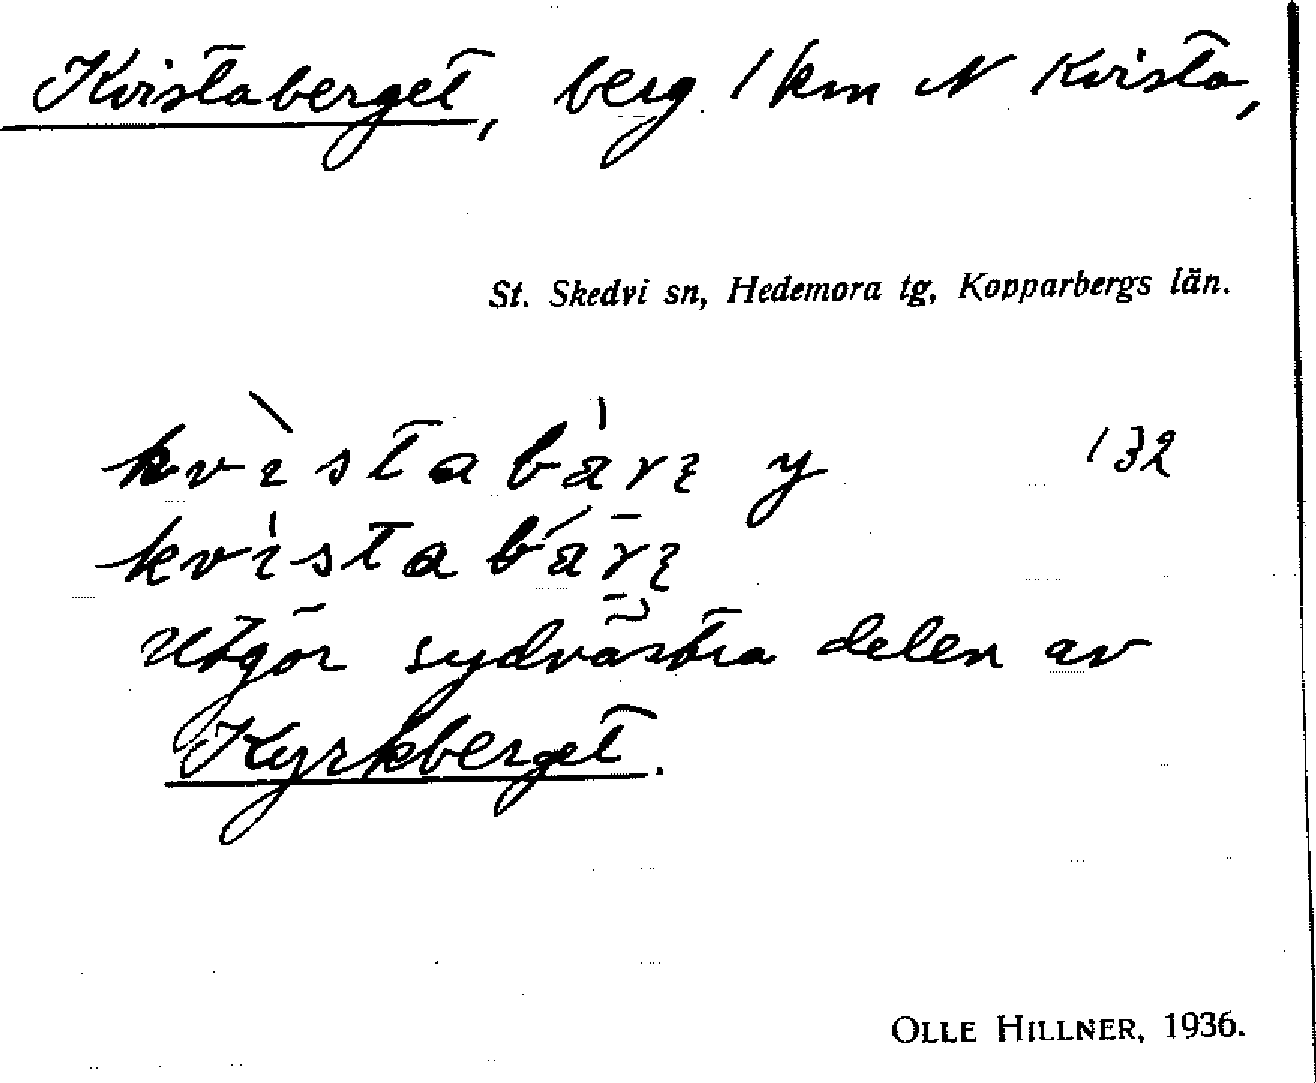 Kvistaberget, berg 1 km N Kvista,
St. Skedvi sn, Hedemora tg, Kopparbergs län.
kvìstabàrę y 132
kvistabárę
Utgör sydvästra delen av
Kyrkberget.
OLLE HILLNER, 1936.